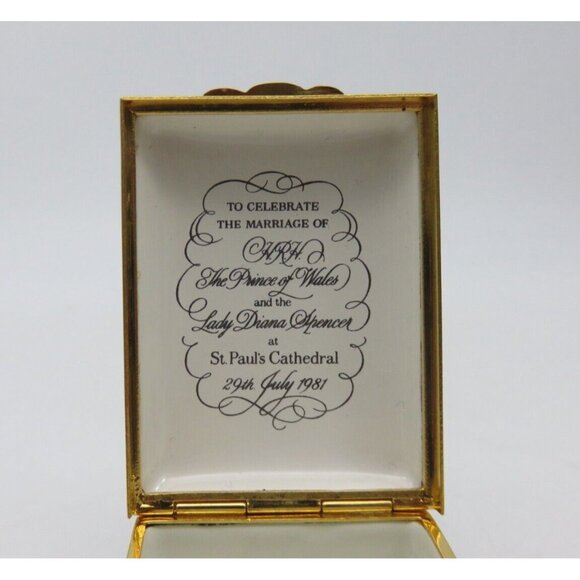 TO CELEBRATE
THE MARRIAGE OF
H.R.H.
The Prince of Wales
and the
Lady Diana Spencer
at
St. Paul's Cathedral
29th July 1981